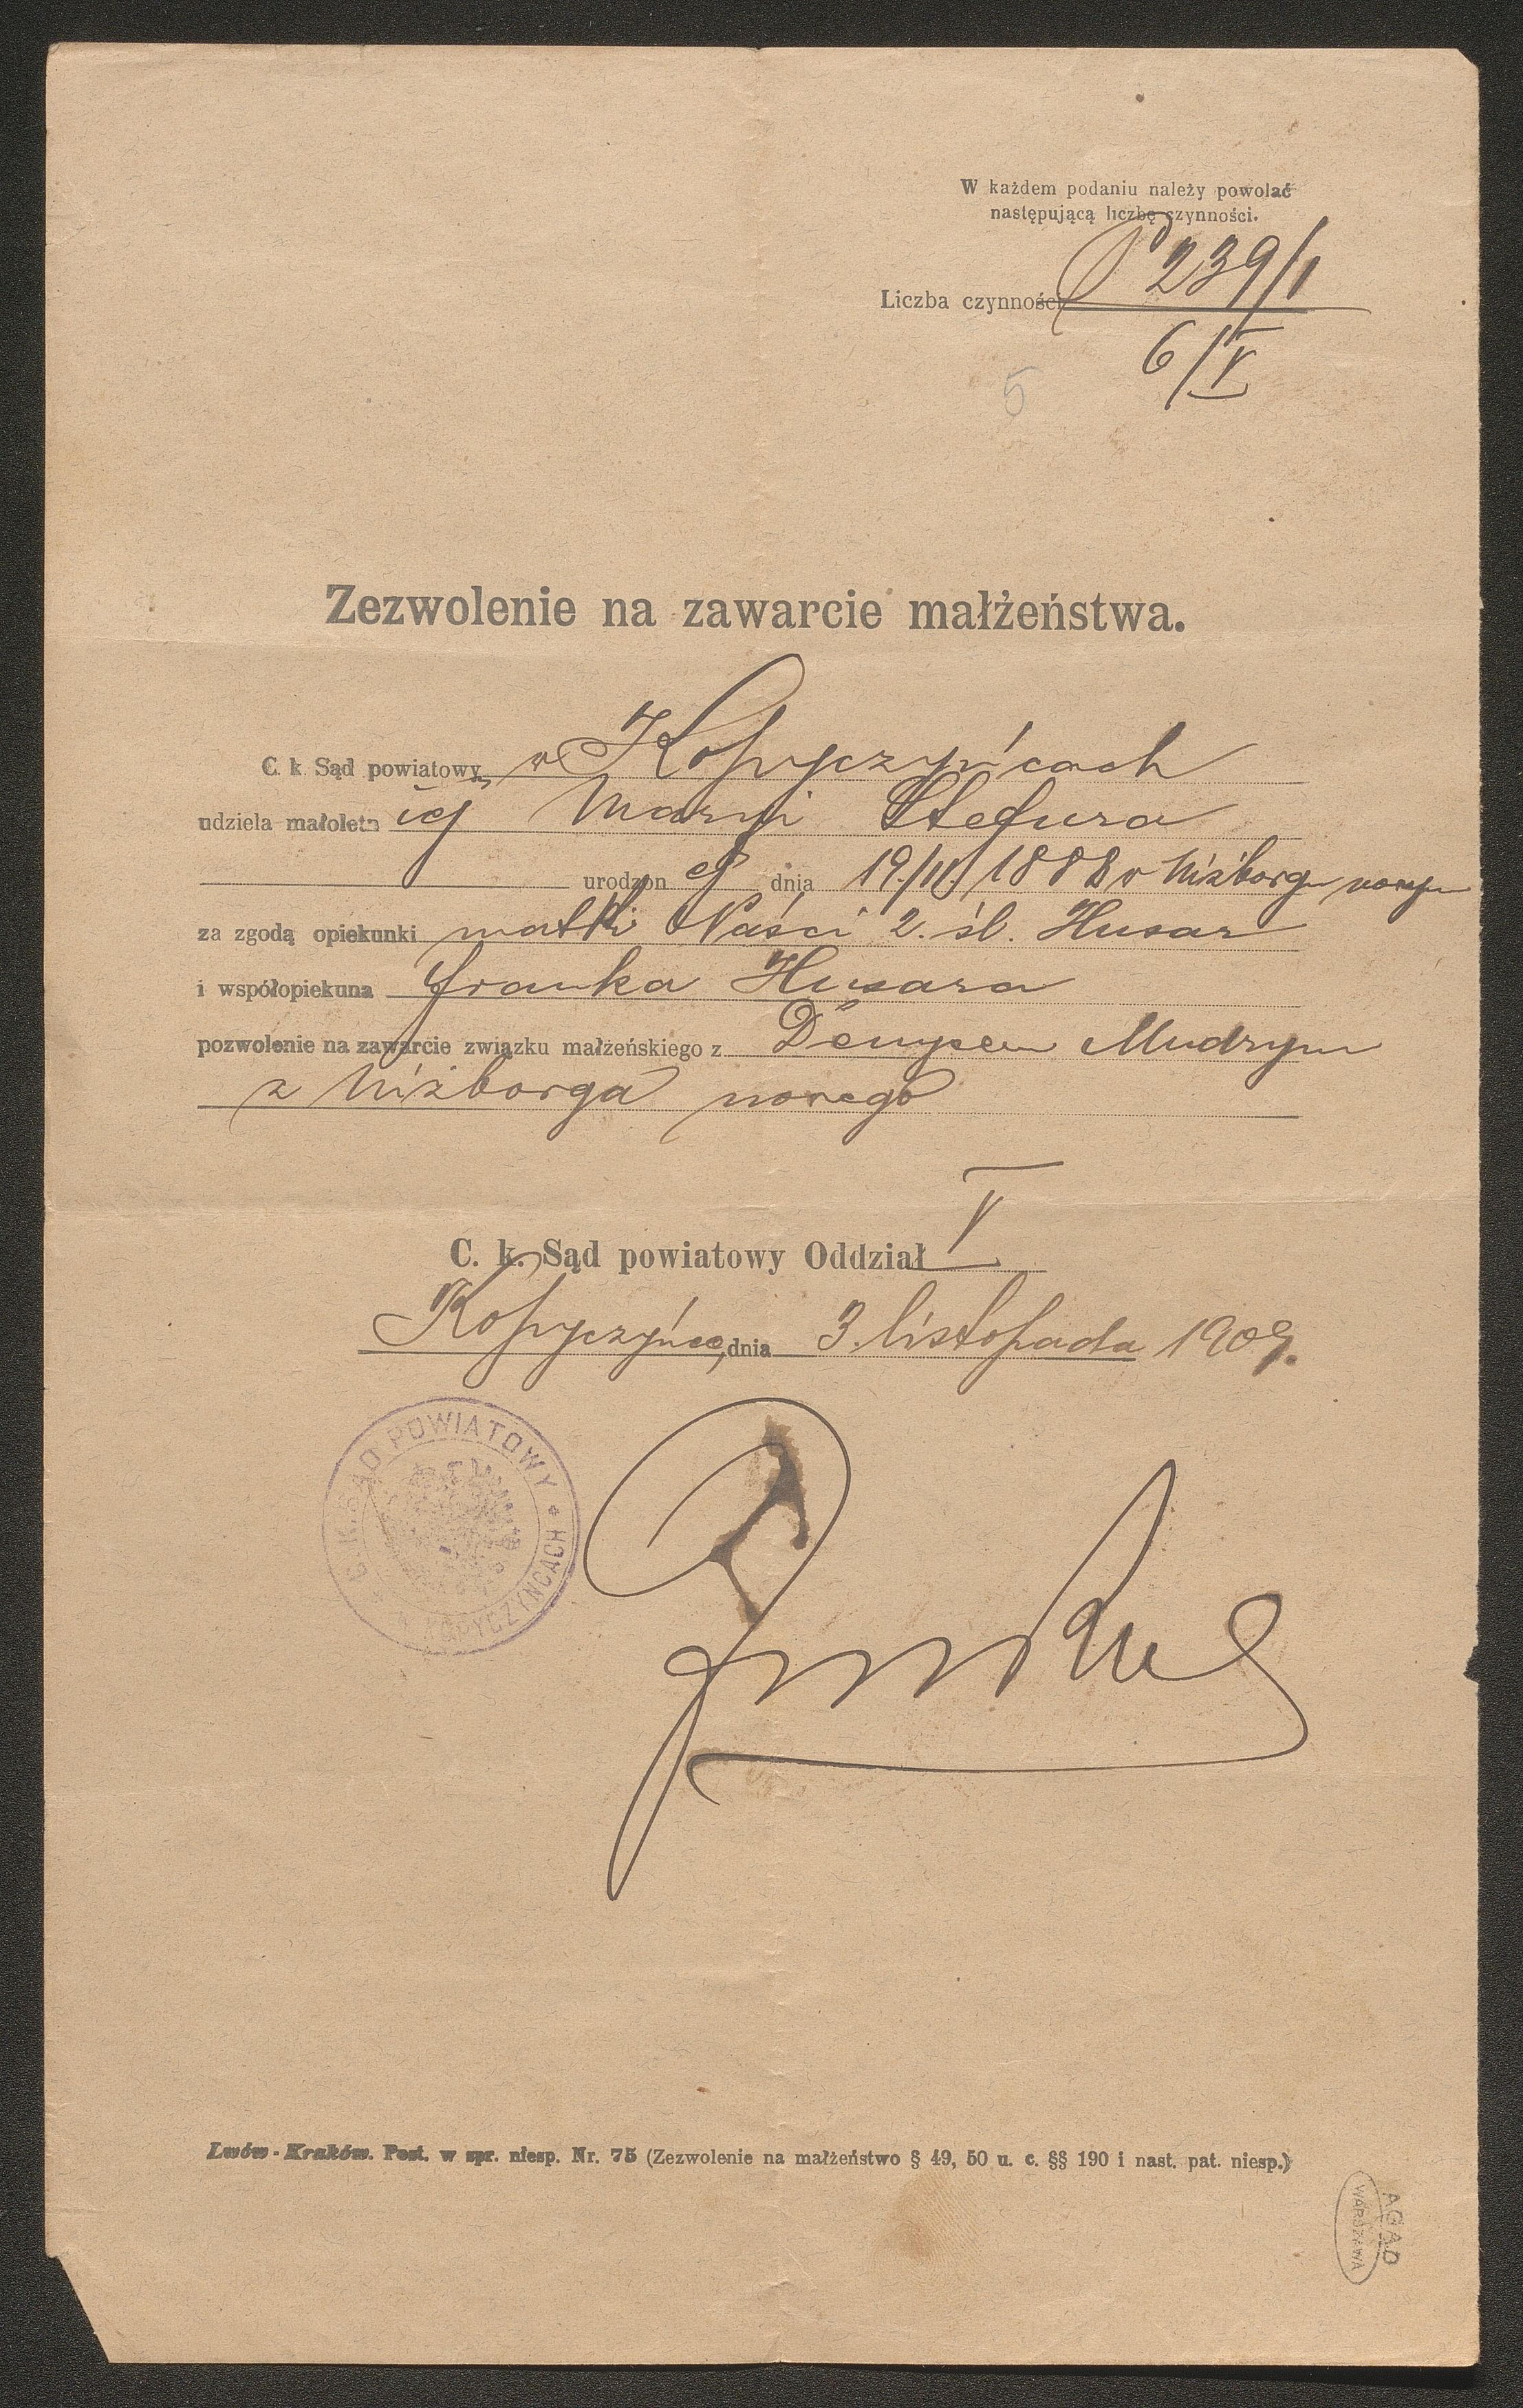 W każdem podaniu należy powołać
następującą liczbę czynności.
Liczba czynności P 239/1
6/V
5
Zezwolenie na zawarcie małżeństwa.
C. k Sąd powiatowy w Kopyczyńcach
udziela małoletniej Maryi Stefura
urodzonej dnia 19./III./1888 w Niżborgu nowym
za zgodą opiekunki matki Naści 2. śl. Husar
i współopiekuna Franka Husara
pozwolenie na zawarcie związku małżeńskiego z Denysem Mudrym
z Niżborga nowego
C. k. Sąd powiatowy Oddział V
Kopyczyńce, dnia 3. listopada 1909.
C. K. SĄD POWIATOWY * W KOPYCZYŃCACH
Lwów - Kraków. Post. w spr. niesp. Nr. 75 (Zezwolenie na małżeństwo § 49, 50 u. c. §§ 190 i nast. pat. niesp.)
AGAD
WARSZAWA